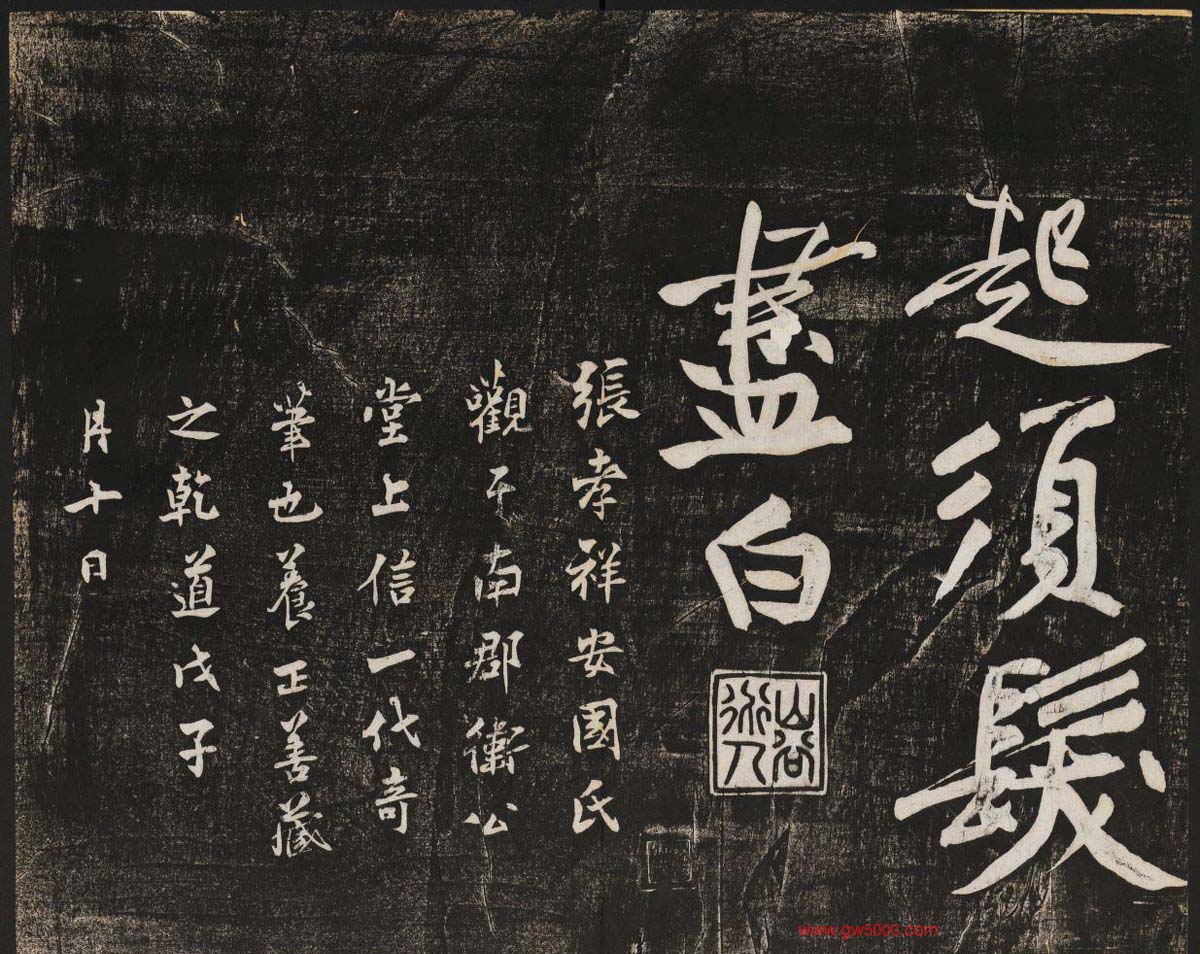 起須髮
盡白
山谷道人
張孝祥安國氏
觀于南郡衛公
堂上信一代奇
筆也養正善藏
之乾道戊子
月十日
www.gw5000.com